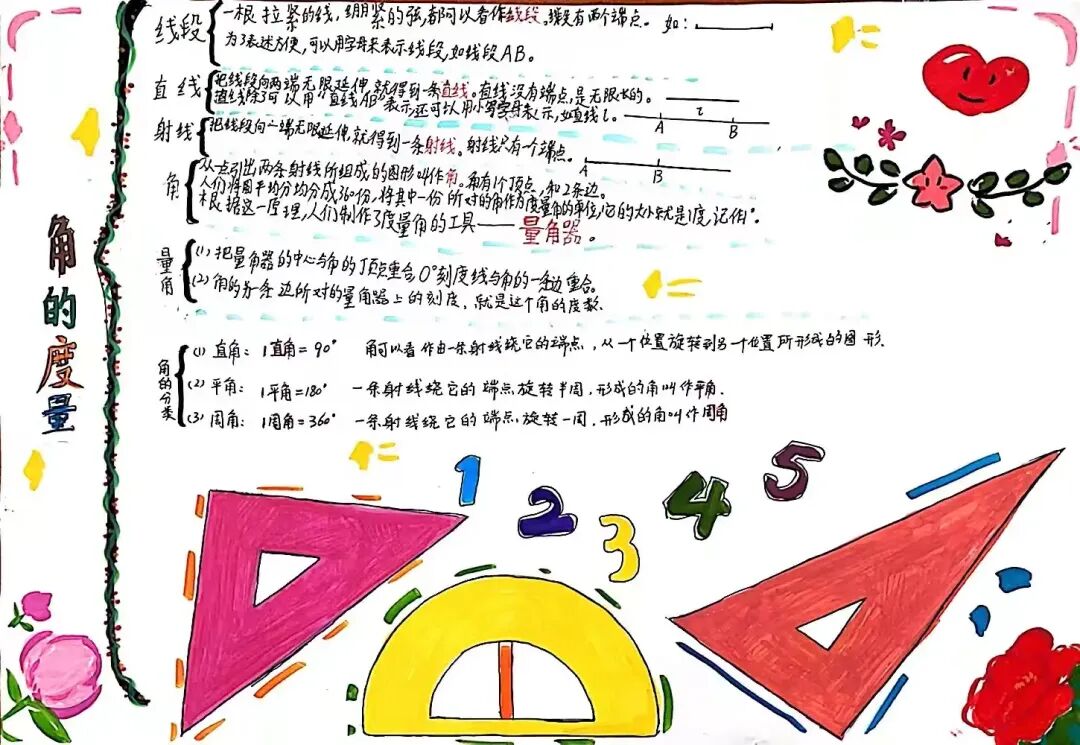 角的度量
线段 一根拉紧的线,绷紧的弦,都可以看作线段,线段有两个端点。如:
为了表述方便,可以用字母来表示线段,如线段AB。
直线 把线段向两端无限延伸,就得到一条直线。直线没有端点,是无限长的。
直线除了可以用"直线AB"表示,还可以用小写字母表示,如直线l。
l
A B
射线 把线段向一端无限延伸,就得到一条射线。射线只有一个端点。
A B
角 从一点引出两条射线所组成的图形叫作角。角有1个顶点,和2条边。
人们将圆平均分均分成360份,将其中一份所对的角作为度量角的单位,它的大小就是1度,记作1°。
根据这一原理,人们制作了度量角的工具——量角器。
量角 (1)把量角器的中心与角的顶点重合,0°刻度线与角的一条边重合。
(2)角的另一条边所对的量角器上的刻度,就是这个角的度数.
角的分类 (1)直角:1直角=90° 角可以看作由一条射线绕它的端点,从一个位置旋转到另一个位置所形成的图形.
(2)平角:1平角=180° 一条射线绕它的端点旋转半周,形成的角叫作平角.
(3)周角:1周角=360° 一条射线绕它的端点旋转一周,形成的角叫作周角
1 2 3 4 5